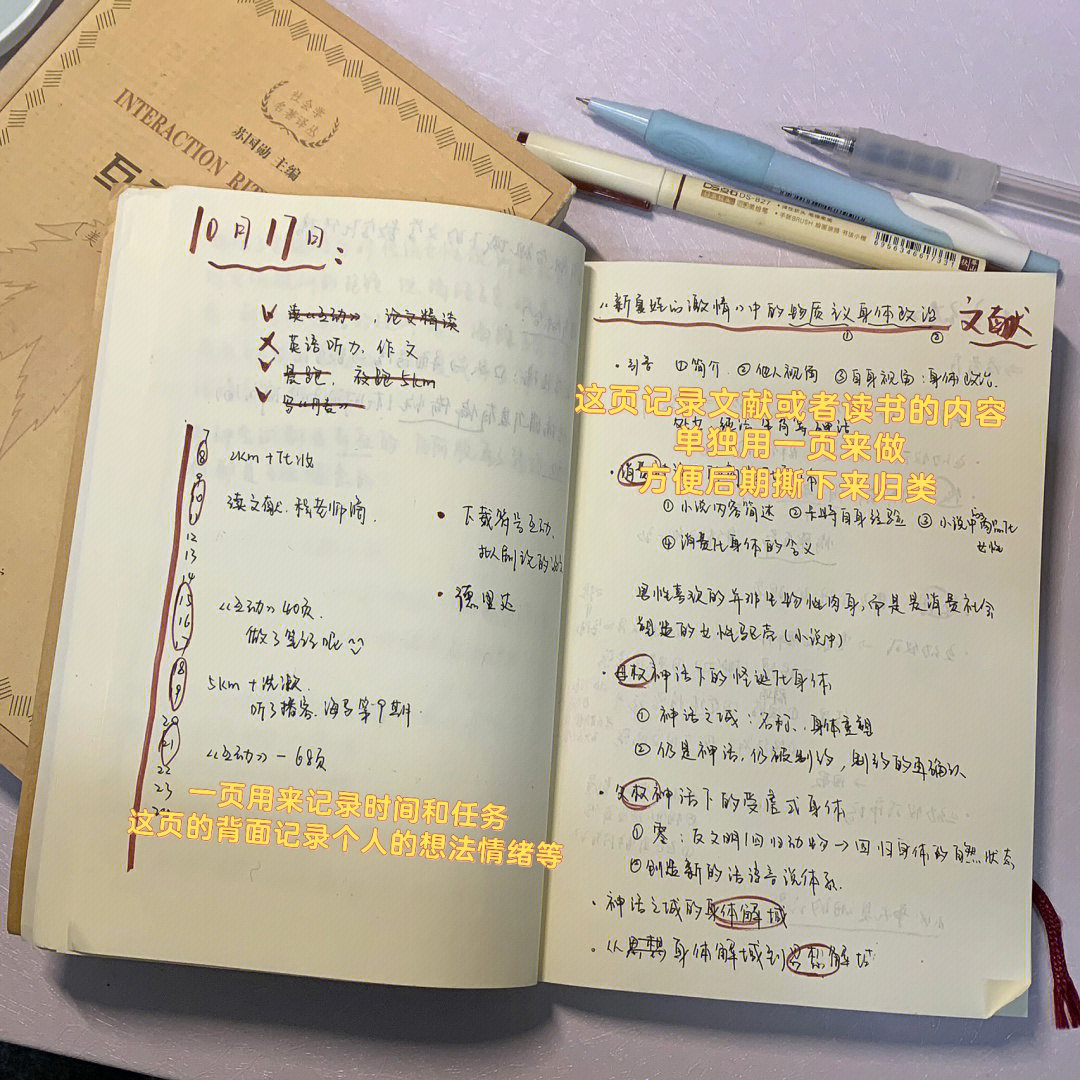 社会学
名著译丛
INTERACTION RIT
苏国勋 主编
互
DS-827
6956346671331
10月17日:
读《互动》,论文精读
英语听力,作文
晨跑,夜跑5km
7
8 2km+
9
10 读文献.
12
13
14
15 《互动》40页
16 做了笔记呢
17
18 5km+洗漱.
19 听了播客.
20
21 《互动》-68页
22
23
下载符号互动
拟剧论的
德里达
一页用来记录时间和任务
这页的背面记录个人的想法情绪等
《新夏娃的激情》中的物质主义身体政治 文献
① ②
引言 ①简介 ②他人视角 ③自身视角:身体政治.
这页记录文献或者读书的内容
单独用一页来做
方便后期撕下来归类
消费
①小说内容简述 ②卡特自身经验 ③小说中商品化
女性
④消费化身体的含义
男性喜欢的并非生物性肉身,而是是消费社会
塑造的女性躯壳(小说中)
母权神话下的怪诞化身体
①神话之域:名称、身体重塑
②仍是神话,仍被制约,制约的再确认
父权神话下的受虐式身体
①零:反文明/回归动物→回归身体的自然状态
②创造新的法语言说体系.
神话之域的身体解域
从思想身体解域到思想解域